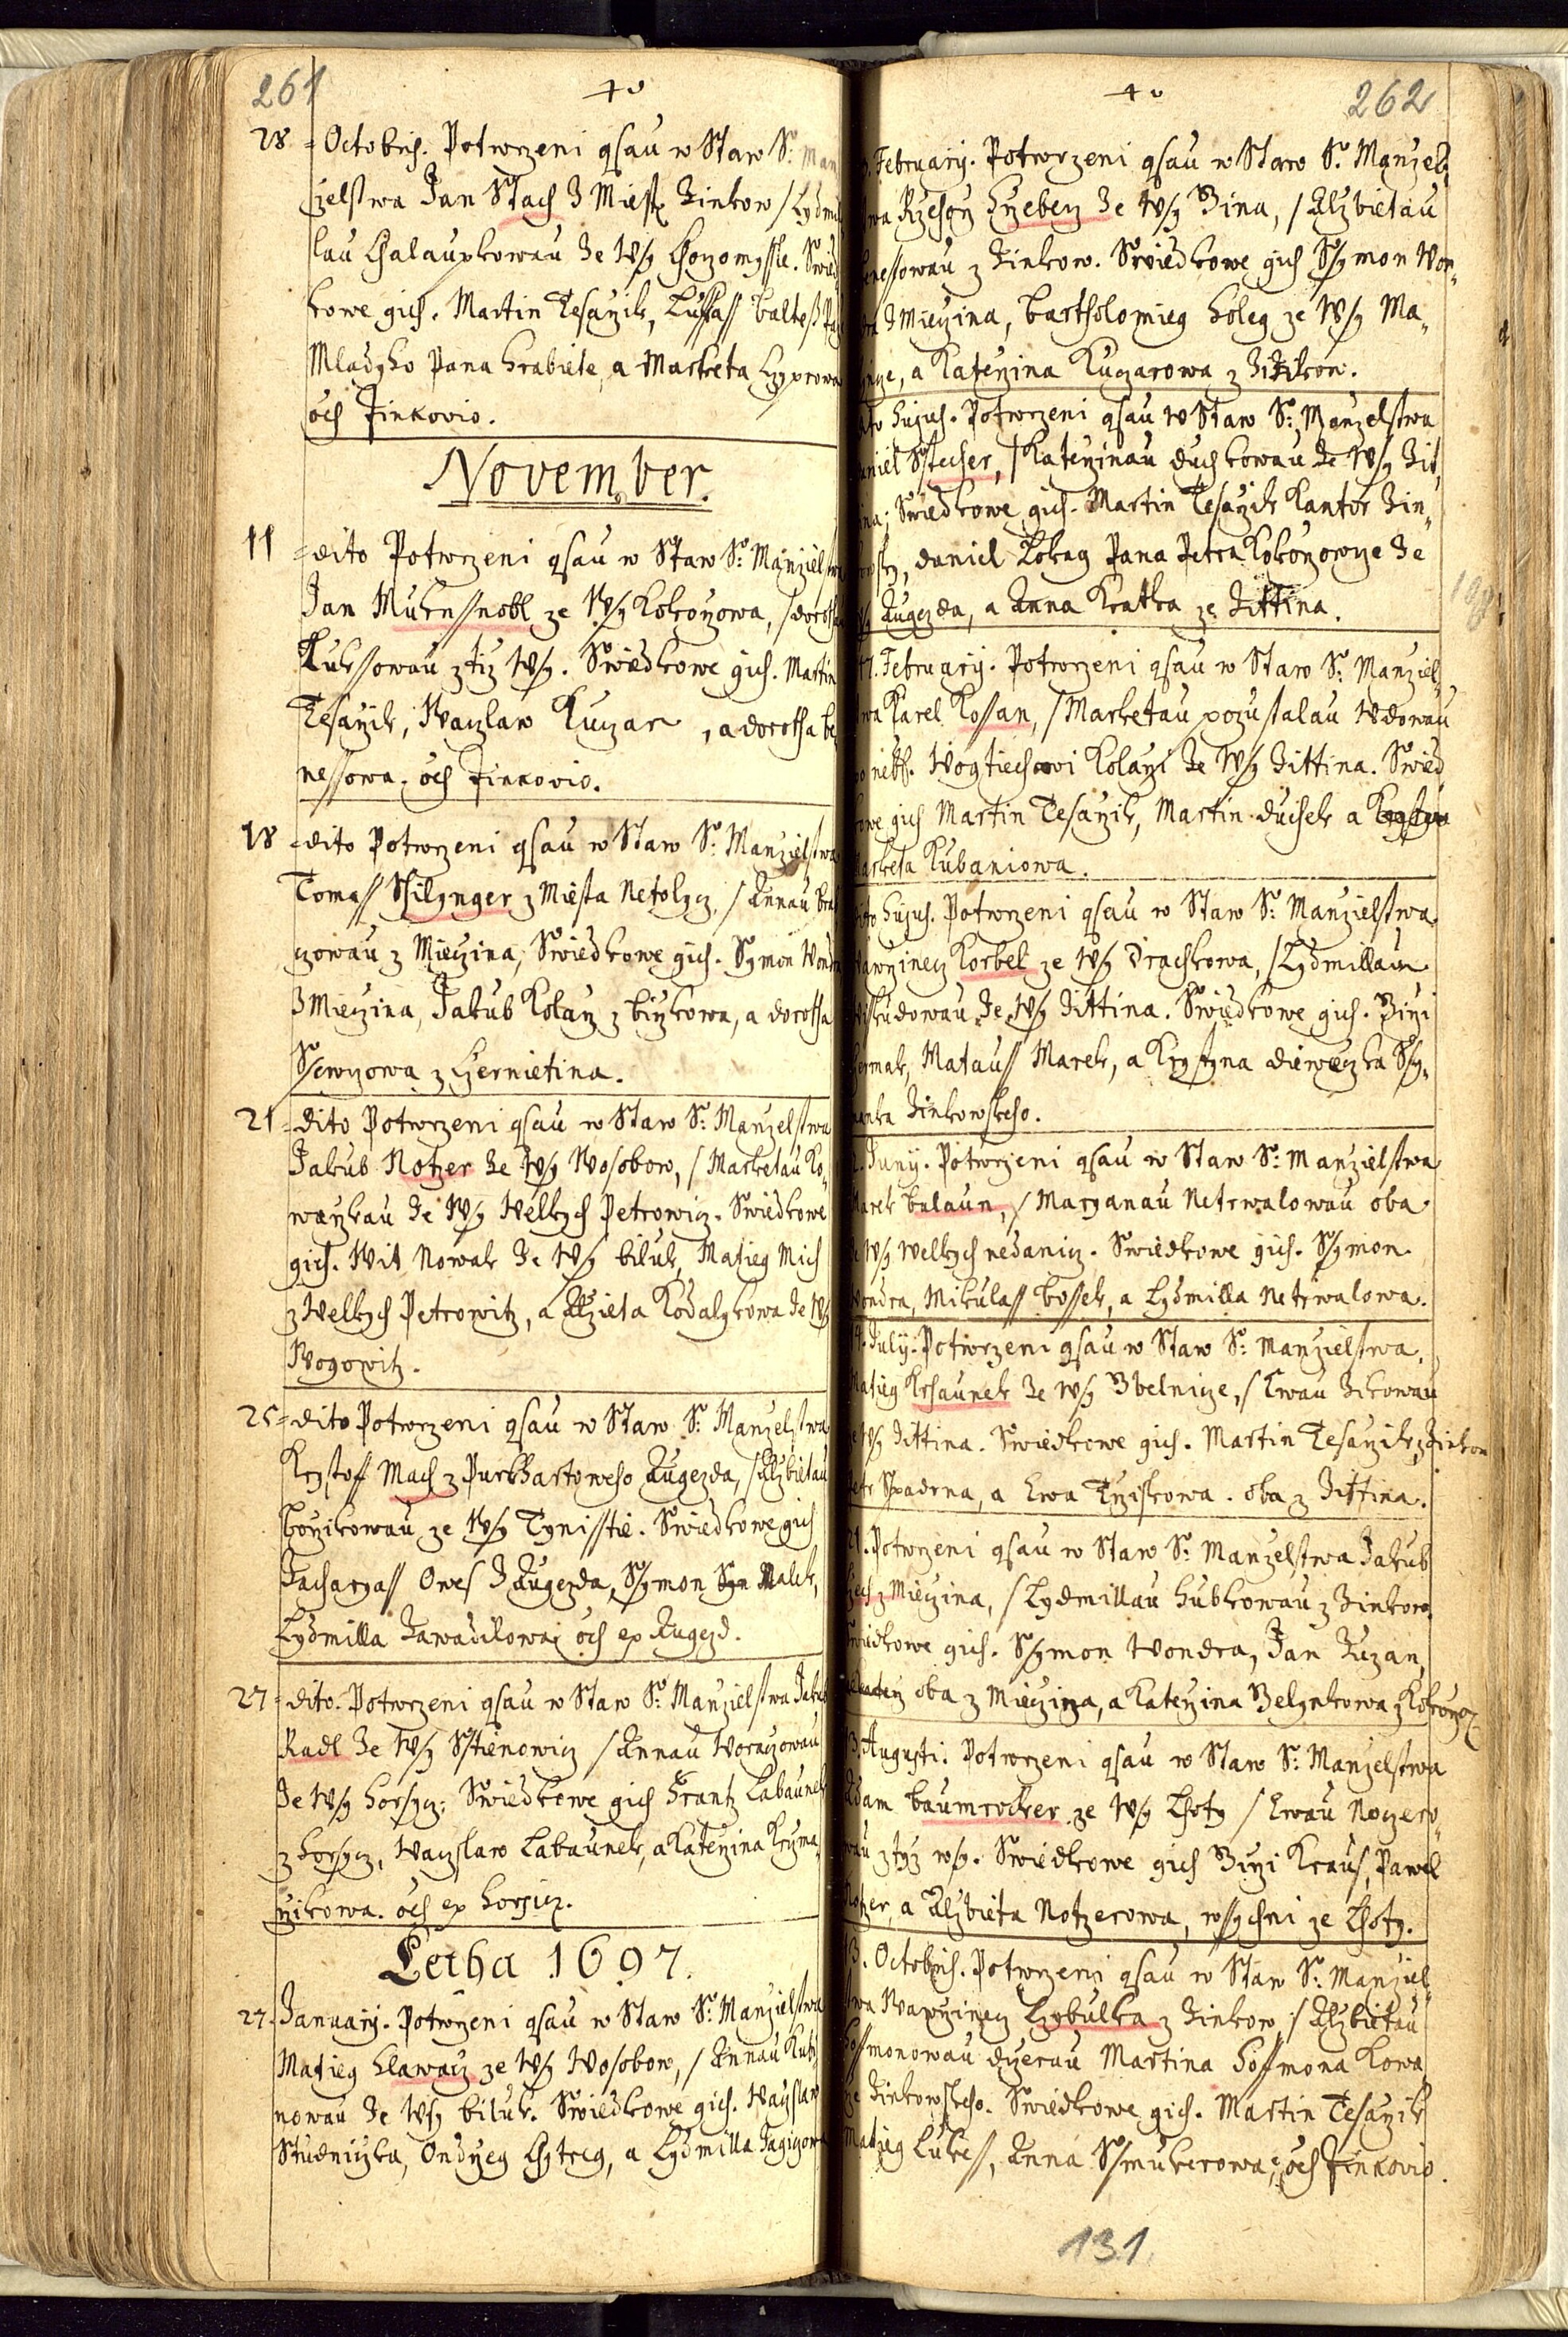 261
40
28 = Octobris. Potwrzeni gsau w Staw S: Man
zelstwa Jan Stach Z Miest Zinkow / Lydmi
lau Chalaupkowau Ze Wsy Chozomyssle. Swied
kowe gich. Martin Tesarzik, Lukass Baltess
Mladyho Pana hrabiete, a Marketa
och Zinkovio.
November.
11 = dito Potwrzeni gsau w Staw S: Manzielstwa
Jan Muknssnobl ze Wsy Kokorzowa, / dorotha
Kukssowau z tiz Wsy. Swiedkowe gich. Martin
Tesarzik, Waczlaw Kuczar, a dorotha be
nessowa. och Zinkovio.
18 = dito Potwrzeni gsau w Staw S: Manzielstwa
Tomass Ssilynger z Miesta Netolycz, / Annau
zowau z Mieczina, Swiedkowe gich. Symon Wondra
Z Mieczina, Jakub Kolarz z bizkowa, a dorotha
Ssewczowa z Czernietina.
21 = dito Potwrzeni gsau w Staw S: Manzelstwa
Jakub Notzer Ze Wsy Wosobow, / Marketau Ko
warzkau Ze Wsy Welkych Petrowicz. Swiedkowe
gich. Wit Nowak Ze Wsy biluk, Matieg Mich
z Welkych Petrowitz, a Alzieta Kodalykowa Ze Wsy
Wogowitz.
25 = dito Potwrzeni gsau w Staw S: Manzelstwa
Krystoff Mach z Purkhartoweho Augezda, / Alzbietau
borzikowau ze Wsy Tynisstie. Swiedkowe gich
Zacharyass Owes Z Augezda, Ssymon Malek,
Lydmilla Zawadilowa; och ex Augezd.
27 = dito. Potwrzeni gsau w Staw S: Manzielstwa Jakub
Radl Ze Wsy Sstienowicz / Annau Woraczowau
Ze Wsy horssycz; Swiedkowe gich Frantz Labaunek
z horssycz, Waczslaw Labaunek, a Katerzina Kryma
rzikowa. och ex horssicz.
Letha 1697.
27. January. Potwrzeni gsau w Staw S: Manzielstwa
Matieg hlawacz ze Wsy Wosobow, / Annau Kut
nowau Ze Wsy biluk. Swiedkowe gich. Wacslaw
Studniczka, Ondrzeg Chytreg, a Lydmilla
262
40
February. Potwrzeni gsau w Staw S: Manzel
wa Rzehorz Hrzebecz Ze Wsy Zina, / Alzbietau
nessowau z Zinkow. Swiedkowe gich Ssymon Won
dra Z Mieczina, bartholomieg holeg ze Wsy Ma
a Katerzina Kuczarowa z Zinkow.
dito hujus. Potwrzeni gsau w Staw S: Manzelstwa
aniel Sstecher, / Katerzinau duchkowau Ze Wsy Zit
ina; Swiedkowe gich. Martin Tesarzik Kantor Zin
kowsky, daniel Lokag Pana Petra Kokorzowcze Ze
Wsy Augezda, a Anna Kratka ze Zittina.
17. February. Potwrzeni gsau w Staw S: Manziel
wa Karel Kossan, / Marketau pozustalau Wdowau
po nebk. Wogtiechowi Kolarzi Ze Wsy Zittina. Swied
kowe gich Martin Tesarzik, Martin duchek a
Marketa Kubaniowa.
dito hujus. Potwrzeni gsau w Staw S: Manzielstwa
Wawrzinecz Korbel ze Wsy Drachkowa, / Lydmillau
kudowau Ze Wsy Zittina. Swiedkowe gich. Birzi
hermak, Matauss Marek, a Krystyna dieweczka Ssy
Zinkowskeho.
Juny. Potwrzeni gsau w Staw S: Manzielstwa
Marek balaun, / Maryanau Netrwalowau oba
Wsy welkych nedanicz. Swiedkowe gich. Ssymon
Wondra, Mikulass bossek, a Lydmilla Netrwalowa.
July. Potwrzeni gsau w Staw S: Manzielstwa
Matieg Krhaunek Ze Wsy Zbelnicze, / Ewau Zikowau
Wsy Zittina. Swiedkowe gich. Martin Tesarzik z Zinkow
Petr Spaderna, a Ewa Trziskowa. oba z Zittina.
21. Potwrzeni gsau w Staw S: Manzelstwa Jakub
z Mieczina, / Lydmillau hubkowau z Zinkow
Swiedkowe gich. Ssymon Wondra, Jan Zuzan,
oba z Mieczina, a Katerzina Belynkowa z
Augusti. Potwrzeni gsau w Staw S: Manzelstwa
Adam baumrocker ze Wsy Lhoty / Ewau Noczero
wau z tyz wsy. Swiedkowe gich Birzi Kraus, Pawel
Notzer, a Alzbieta Notzerowa, wssychni ze Lhoty.
3. Octobris. Potwrzeni gsau w Staw S: Manziel
stwa Wawrzinecz Czybulka z Zinkow / Alzbietau
hoffmonowau dczerau Martina hoffmona Kowa
rze Zinkowskeho. Swiedkowe gich. Martin Tesarzik
Matieg Lukess, Anna Ssmukerowa; och Zinkovio.
131